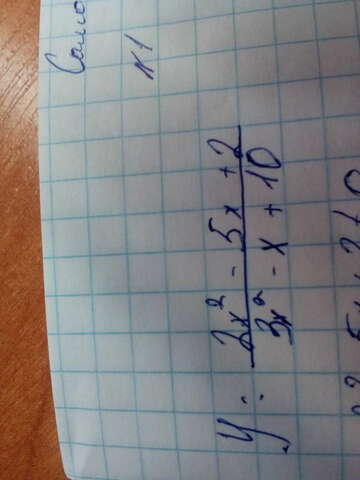 Само
№1
y = \frac{2x^2 - 5x + 2}{3x^2 - x + 10}